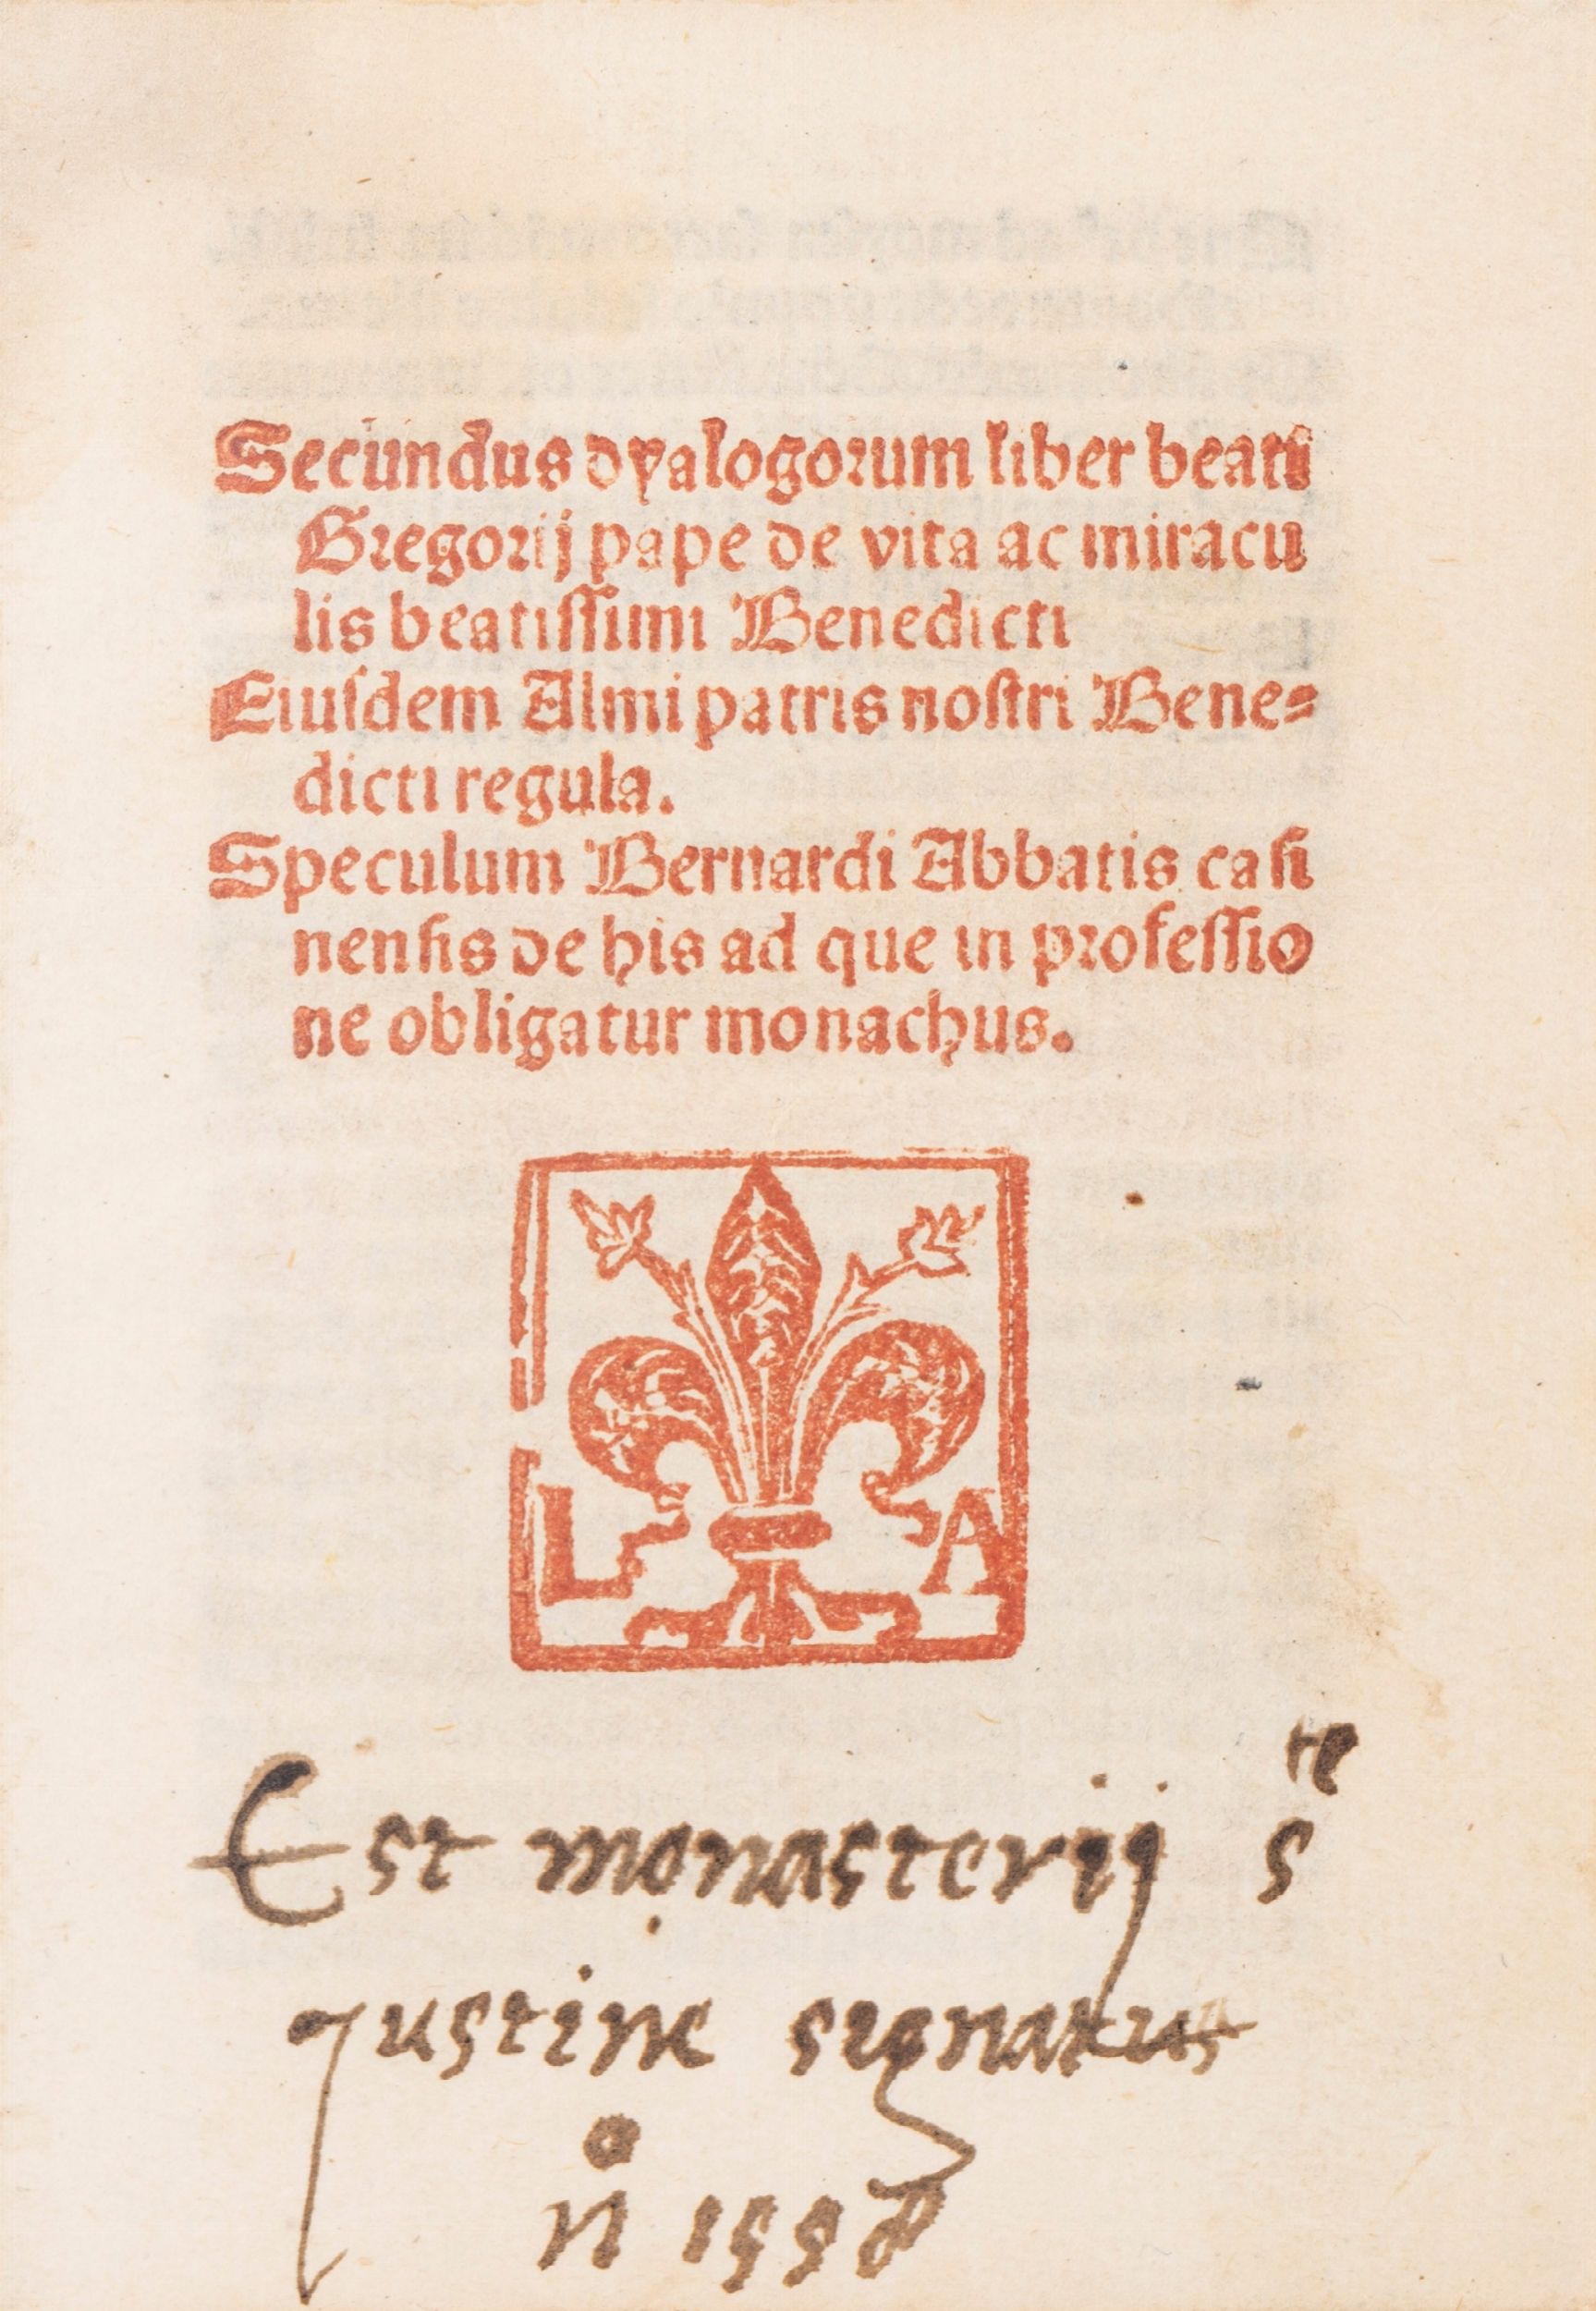 Secundus dyalogorum liber beati
Gregorij pape de vita ac miracu
lis beatissimi Benedicti
Eiusdem Almi patris nostri Bene=
dicti regula.
Speculum Bernardi Abbatis casi
nensis de his ad que in professio
ne obligatur monachus.
L A
Est monasterij s^te
justine signatus
n^o